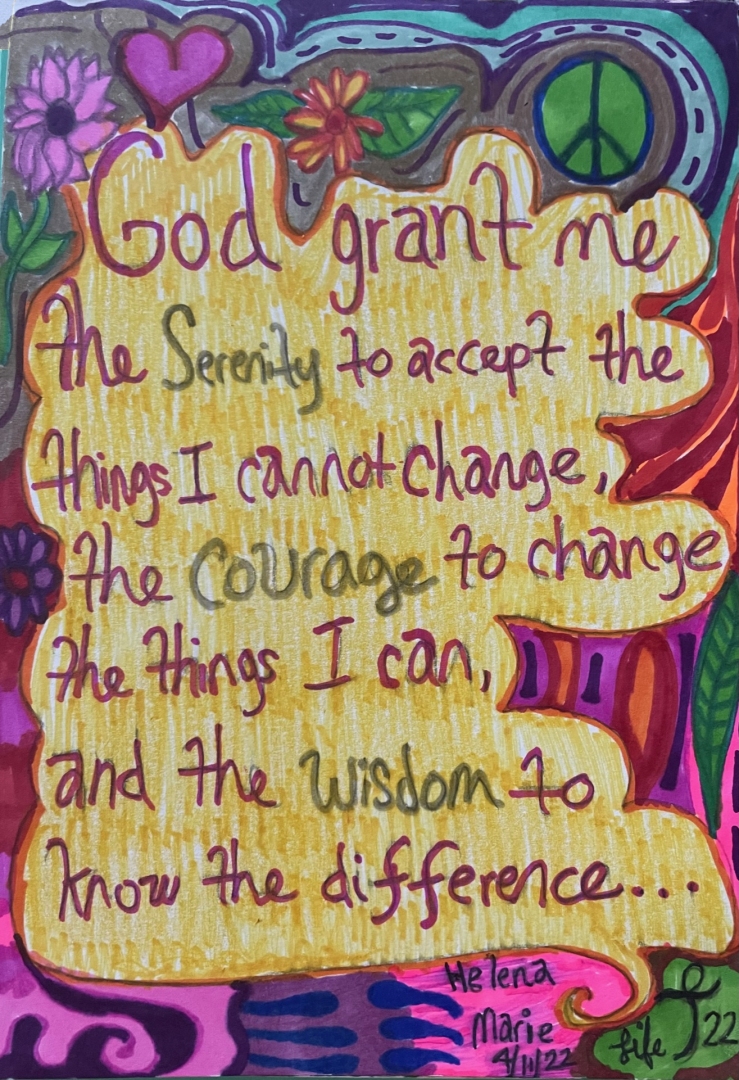 God grant me
the Serenity to accept the
things I cannot change,
the courage to change
the things I can,
and the wisdom to
know the difference...
Helena
Marie
4/11/22
Life
22